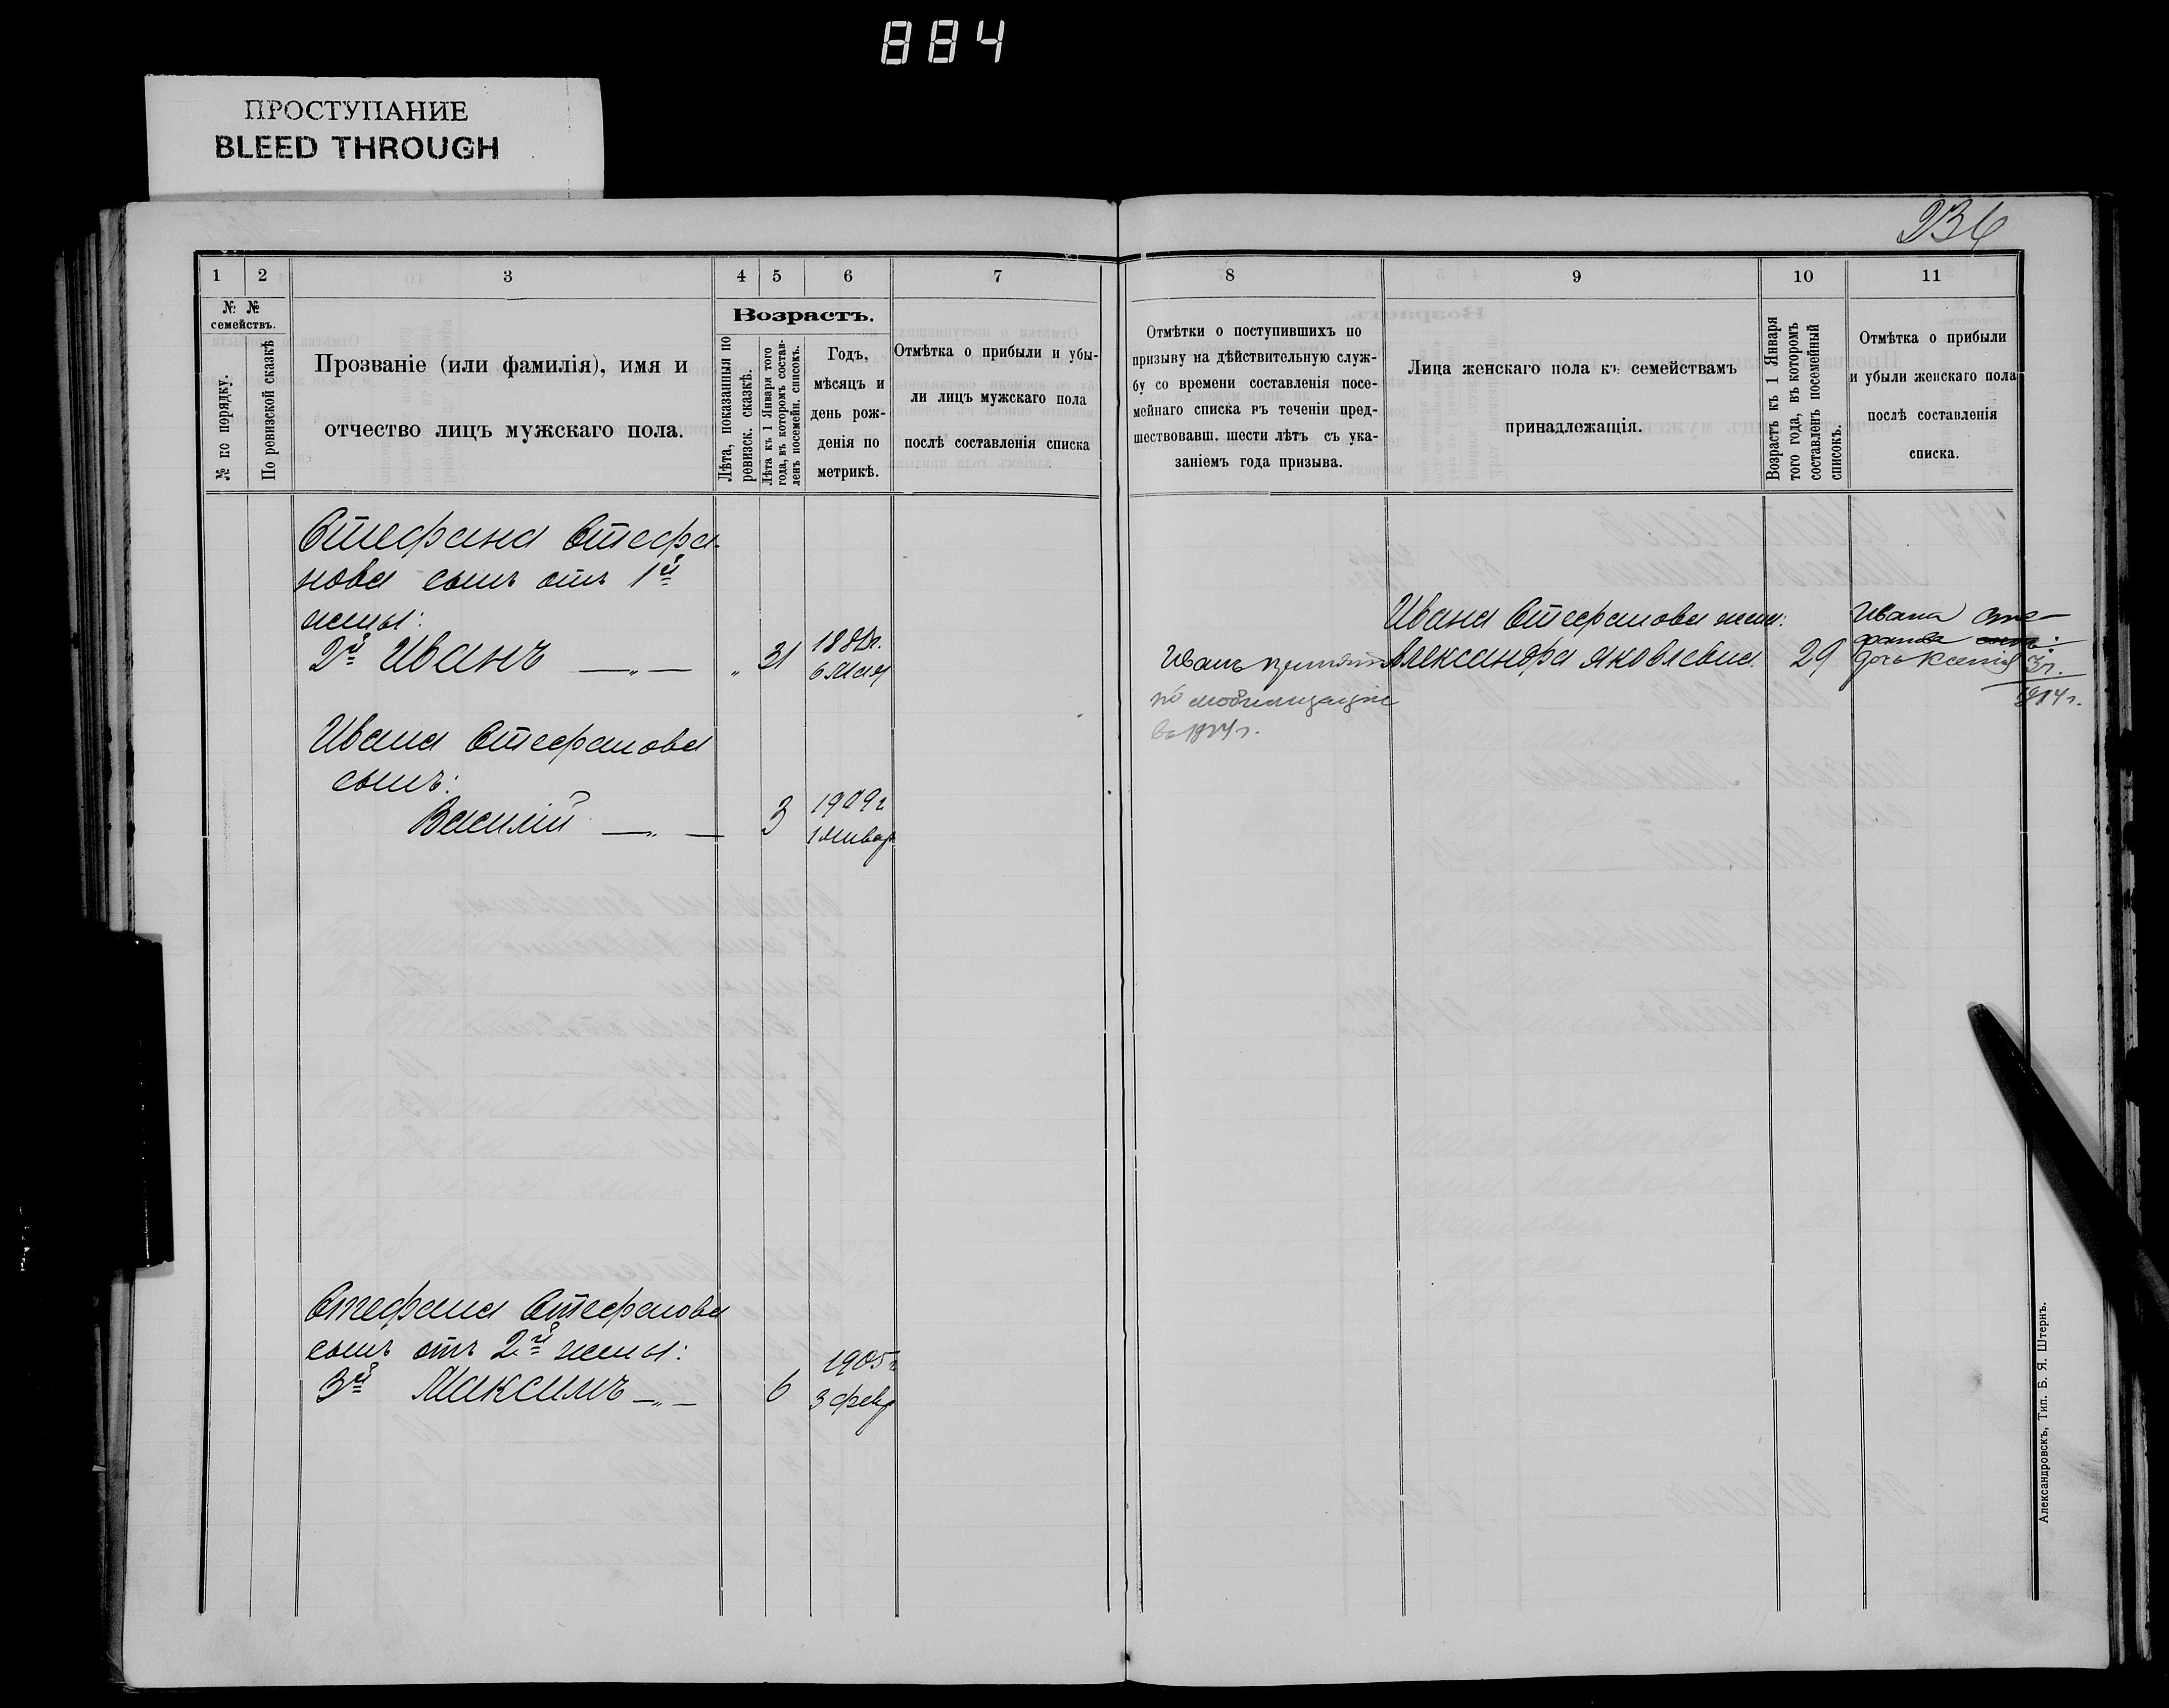 884
ПРОСТУПАНИЕ
BLEED THROUGH
236
1 2 3 4 5 6 7 8 9 10 11
№ № семействъ.
№ по порядку.
По ревизской сказкѣ
Прозваніе (или фамилія), имя и
отчество лицъ мужскаго пола.
Возрастъ.
Лѣта, показанныя по
ревизск. сказкѣ.
Лѣта къ 1 Января того
года, въ которомъ состав-
ленъ посемейн. списокъ.
Годъ,
мѣсяцъ и
день рож-
денія по
метрикѣ.
Отмѣтка о прибыли и убы-
ли лицъ мужскаго пола
послѣ составленія списка
Отмѣтки о поступившихъ по
призыву на дѣйствительную служ-
бу со времени составленія посе-
мейнаго списка въ теченіи пред-
шествовавш. шести лѣтъ съ ука-
заніемъ года призыва.
Лица женскаго пола къ семействамъ
принадлежащія.
Возрастъ къ 1 Января
того года, въ которомъ
составленъ посемейный
списокъ.
Отмѣтка о прибыли
и убыли женскаго пола
послѣ составленія
списка.
Стефана Стефа-
нова сынъ отъ 1й
жены:
2й Иванъ — „ — „ 31
6 Мая
Ивана Стефанова
сынъ:
Василій — „ — 3 1909 г
1 Январ
Стефана Стефанова
сынъ отъ 2й жены:
3й Максимъ — „ — 6 1905 г
3 февр
Иванъ принятъ
по мобилизаціи
въ 1914 г.
Ивана Стефанова жена:
Александра Яковлевна 29
Ивана Сте-
фанова
дочь Ксенія 3 г.
1914 г.
Александровскъ, Тип. Б. Я. Штернъ.